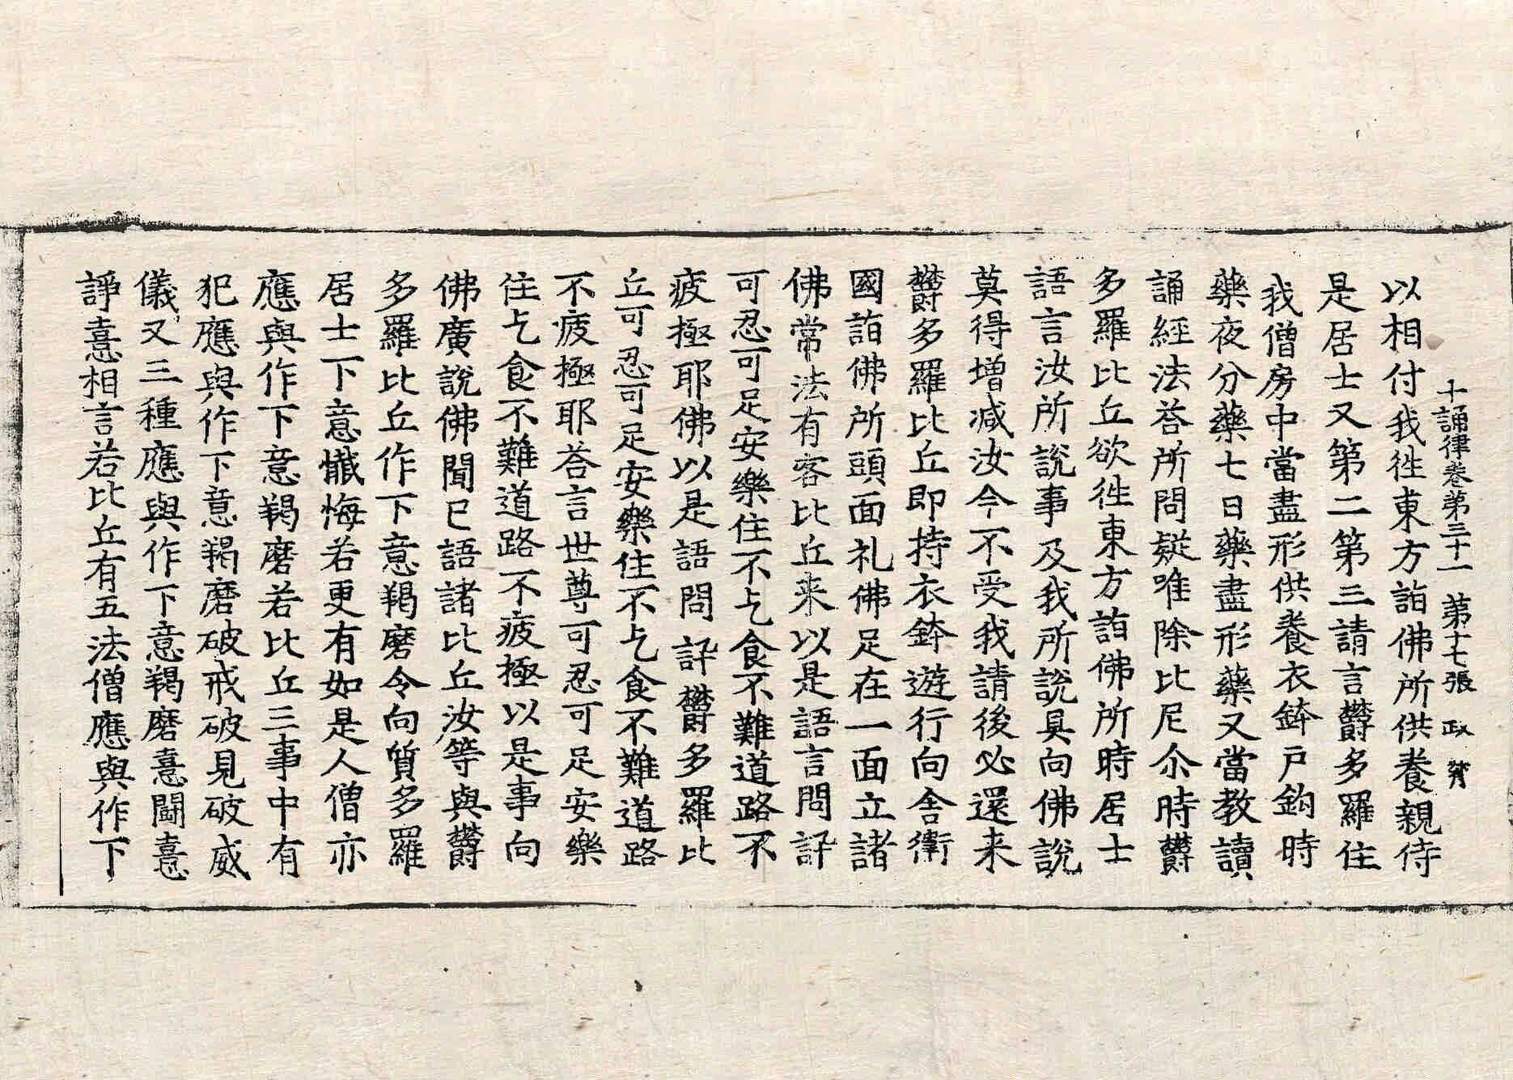 十誦律卷第三十一 第十七張 政
以相付我徃東方詣佛所供養親侍
是居士又第二第三請言欝多羅住
我僧房中當盡形供養衣鉢戶鈎時
藥夜分藥七日藥盡形藥又當教讀
誦經法荅所問疑唯除比尼尒時欝
多羅比丘欲徃東方詣佛所時居士
語言汝所說事及我所說具向佛說
莫得增减汝今不受我請後必還来
欝多羅比丘即持衣鉢遊行向舍衛
國詣佛所頭面礼佛足在一面立諸
佛常法有客比丘来以是語言問訊
可忍可足安樂住不乞食不難道路不
疲極耶佛以是語問訊欝多羅比
丘可忍可足安樂住不乞食不難道路
不疲極耶荅言世尊可忍可足安樂
住乞食不難道路不疲極以是事向
佛廣說佛聞已語諸比丘汝等與欝
多羅比丘作下意羯磨令向質多羅
居士下意懺悔若更有如是人僧亦
應與作下意羯磨若比丘三事中有
犯應與作下意羯磨破戒破見破威
儀又三種應與作下意羯磨憙鬪憙
諍憙相言若比丘有五法僧應與作下